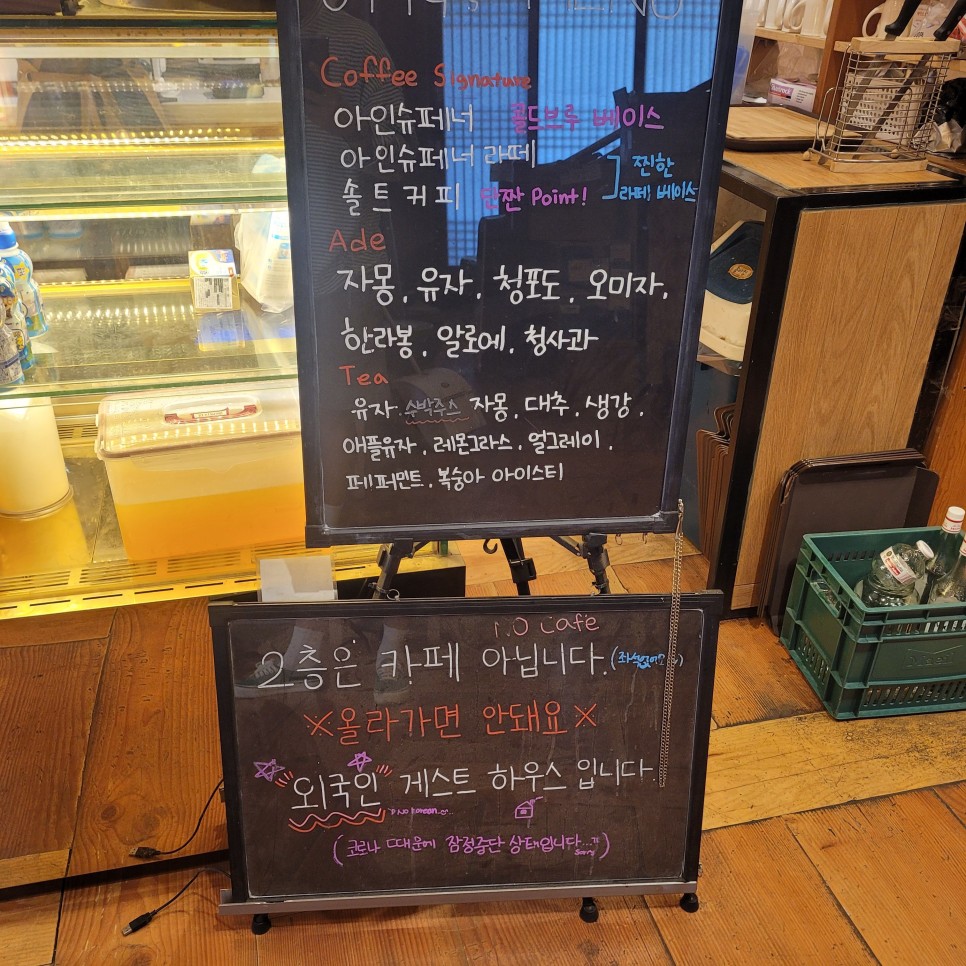 Coffee Signature
아인슈페너 콜드브루 베이스
아인슈페너 라떼
찐한
솔트 커피 단짠 Point! 라떼 베이스
Ade
자몽, 유자, 청포도, 오미자,
한라봉, 알로에, 청사과
Tea
유자, 수박주스 자몽, 대추, 생강,
애플유자, 레몬그라스, 얼그레이,
페퍼민트, 복숭아 아이스티
1.0 Cafe
2층은 카페 아닙니다.
※올라가면 안돼요※
외국인 게스트 하우스 입니다.
(코로나 때문에 잠정중단 상태입니다...ㅠ